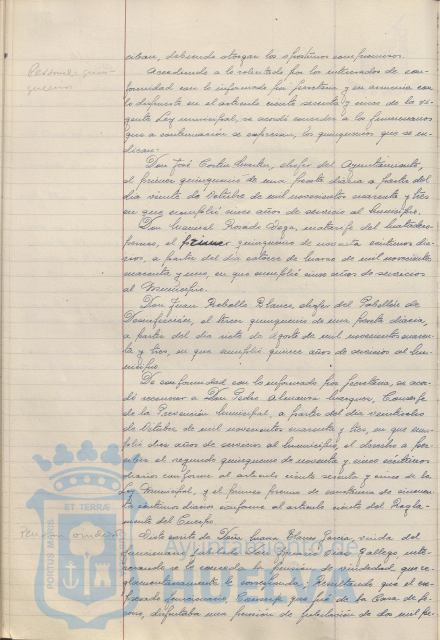 ciban, debiendo otorgar los oportunos compromisos.
Personal, quin-
quenios
Accediendo a lo solicitado por los interesados de con-
formidad con lo informado por Secretaría y en armonía con
lo dispuesto en el artículo ciento sesenta y cinco de la vi-
gente Ley municipal, se acordó conceder a los funcionarios
que a continuación se expresan, los quinquenios que se in-
dican:
Don José Cortés, chofer del Ayuntamiento,
el primer quinquenio de una peseta diaria a partir del
día veinte de Octubre de mil novecientos cuarenta y tres
en que cumplió cinco años de servicio al Municipio.
Don Manuel Rosado Vega, matarife del Matadero
el primer quinquenio de noventa céntimos dia-
rios, a partir del día catorce de Marzo de mil novecientos
cuarenta y uno, en que cumplió cinco años de servicios
al Municipio.
Don Juan Rebollo Blanco chofer del Pabellón de
Desinfección, el tercer quinquenio de una peseta diaria,
a partir del día siete de Agosto de mil novecientos cuaren-
ta y tres, en que cumplió quince años de servicios al Mu-
nicipio.
De conformidad con lo informado por Secretaría, se acor-
dó reconocer a Don Pedro Almansa, Conserje
de la Prevención Municipal, a partir del día veintiseis
de Octubre de mil novecientos cuarenta y tres, en que cum-
plió diez años de servicio al Municipio, el derecho a per-
cibir el segundo quinquenio de noventa y cinco céntimos
diarios conforme al artículo ciento sesenta y cinco de la
Ley Municipal, y el primer premio de constancia de cincuen-
ta céntimos diarios conforme al artículo veinte del Regla-
mento del Cuerpo.
Pensión concedida
Visto escrito de Doña Juana Blanco García, viuda del
funcionario Don Díaz Gallego, inte-
resando se le conceda la pensión de viudedad que re-
glamentariamente le corresponda; Resultando que el ex-
presado funcionario, Conserje que fué de la Casa de So-
corro, disfrutaba una pensión de jubilación de dos mil pe-
PORTUS MAGNIS
ET TERRÆ
Ayuntamiento de